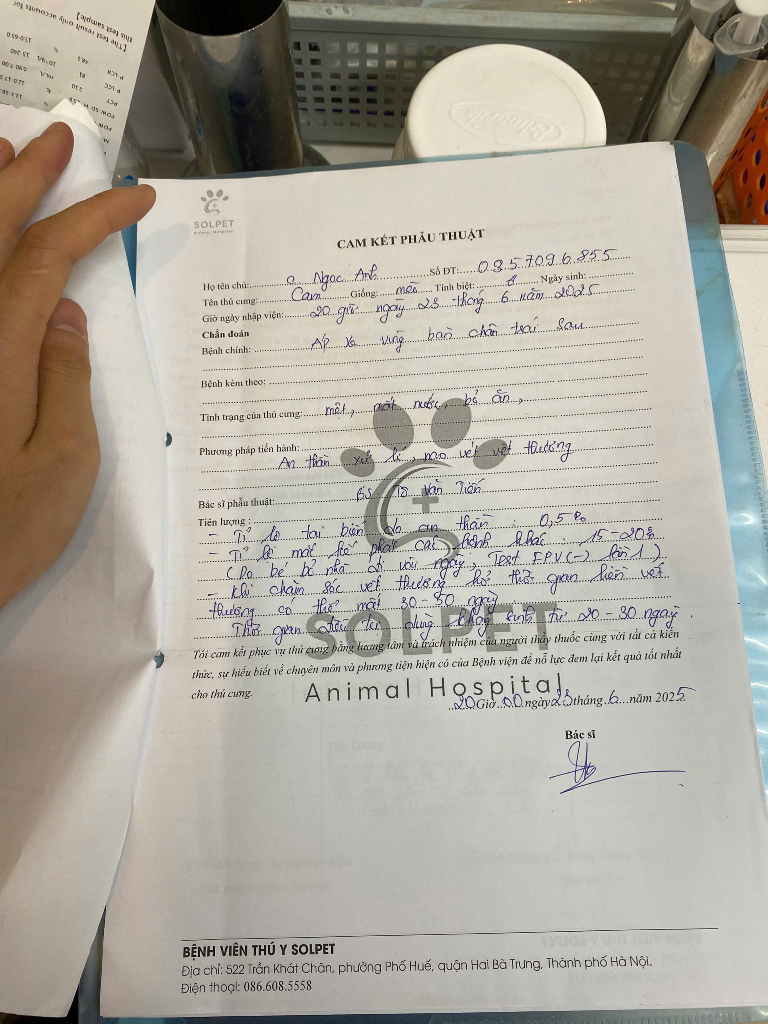 [The test result only accounts for
this test sample]
P LCR
P LCC
PCT
SOLPET
Animal Hospital
CAM KẾT PHẪU THUẬT
Họ tên chủ: c. Ngọc Anh Số ĐT: 0357096855
Tên thú cưng: Cam Giống: mèo Tính biệt: Ngày sinh:
Giờ ngày nhập viện: 20 giờ ngày 23 tháng 6 năm 2025
Chẩn đoán
Bệnh chính: Áp xe vùng bàn chân trái sau
Bệnh kèm theo:
Tình trạng của thú cưng: mệt, mất nước, bỏ ăn,
Phương pháp tiến hành:
An thần xử lí, mổ vết vết thương
Bác sĩ phẫu thuật: BS Tô Văn Tiến
Tiên lượng:
- Tỉ lệ tai biến do an thần: 0,5%
- Tỉ lệ mắc kế phát các bệnh khác: 15-20%
(Do bé bỏ nhà đi vài ngày, Test FPV (-) lần 1)
- Khi chăm sóc vết thương hở thời gian liền vết
thương có thể mất 30-50 ngày
Thời gian điều trị dùng kháng sinh từ 20-30 ngày.
SOLPET
Tôi cam kết phục vụ thú cưng bằng lương tâm và trách nhiệm của người thầy thuốc cùng với tất cả kiến
thức, sự hiểu biết về chuyên môn và phương tiện hiện có của Bệnh viện để nỗ lực đem lại kết quả tốt nhất
cho thú cưng.
Animal Hospital
20 Giờ 00 ngày 23 tháng 6 năm 2025
Bác sĩ
BỆNH VIỆN THÚ Y SOLPET
Địa chỉ: 522 Trần Khát Chân, phường Phố Huế, quận Hai Bà Trưng, Thành phố Hà Nội.
Điện thoại: 086.608.5558